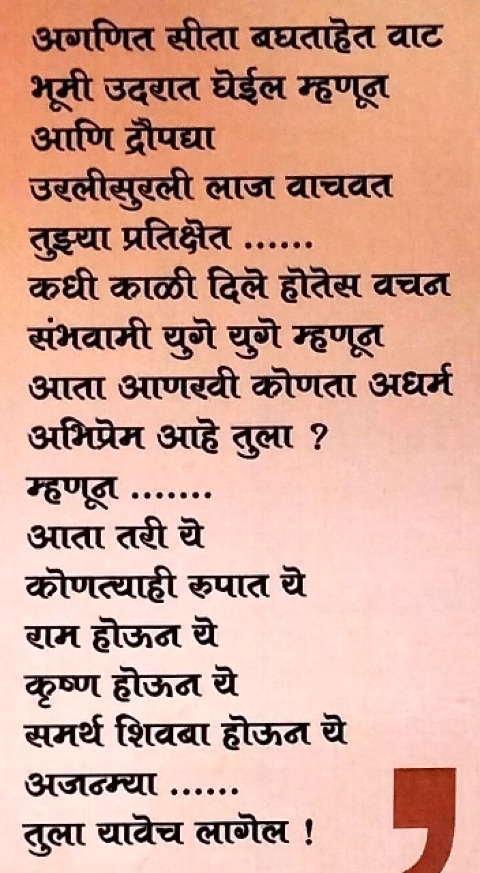 अगणित सीता बघताहेत वाट
भूमी उदरात घेईल म्हणून
आणि द्रौपद्या
उरलीसुरली लाज वाचवत
तुझ्या प्रतिक्षेत ......
कधी काळी दिले होतेस वचन
संभवामी युगे युगे म्हणून
आता आणखी कोणता अधर्म
अभिप्रेम आहे तुला ?
म्हणून .......
आता तरी ये
कोणत्याही रुपात ये
राम होऊन ये
कृष्ण होऊन ये
समर्थ शिवबा होऊन ये
अजन्म्या ......
तुला यावेच लागेल !